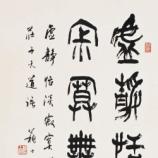 虛靜恬
寂寞無
虛靜恬淡寂寞
莊子天道語